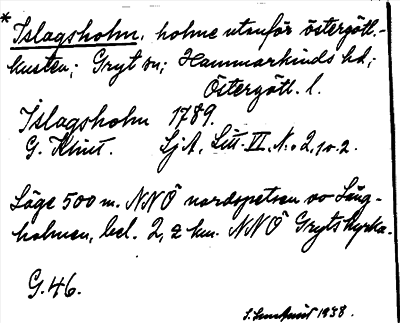 *Islagsholm, holme utanför östergötl.-
kusten; Gryt sn; Hammarkinds hd;
Östergötl. l.
Islagsholm 1789.
G. Klint. SjA, Litt. VI, N:o 2, 1 o. 2.
Läge 500 m. NNÖ nordspetsen av Lång-
holmen, bel. 2,2 km. NNÖ Gryts kyrka.
G. 46.
1938.